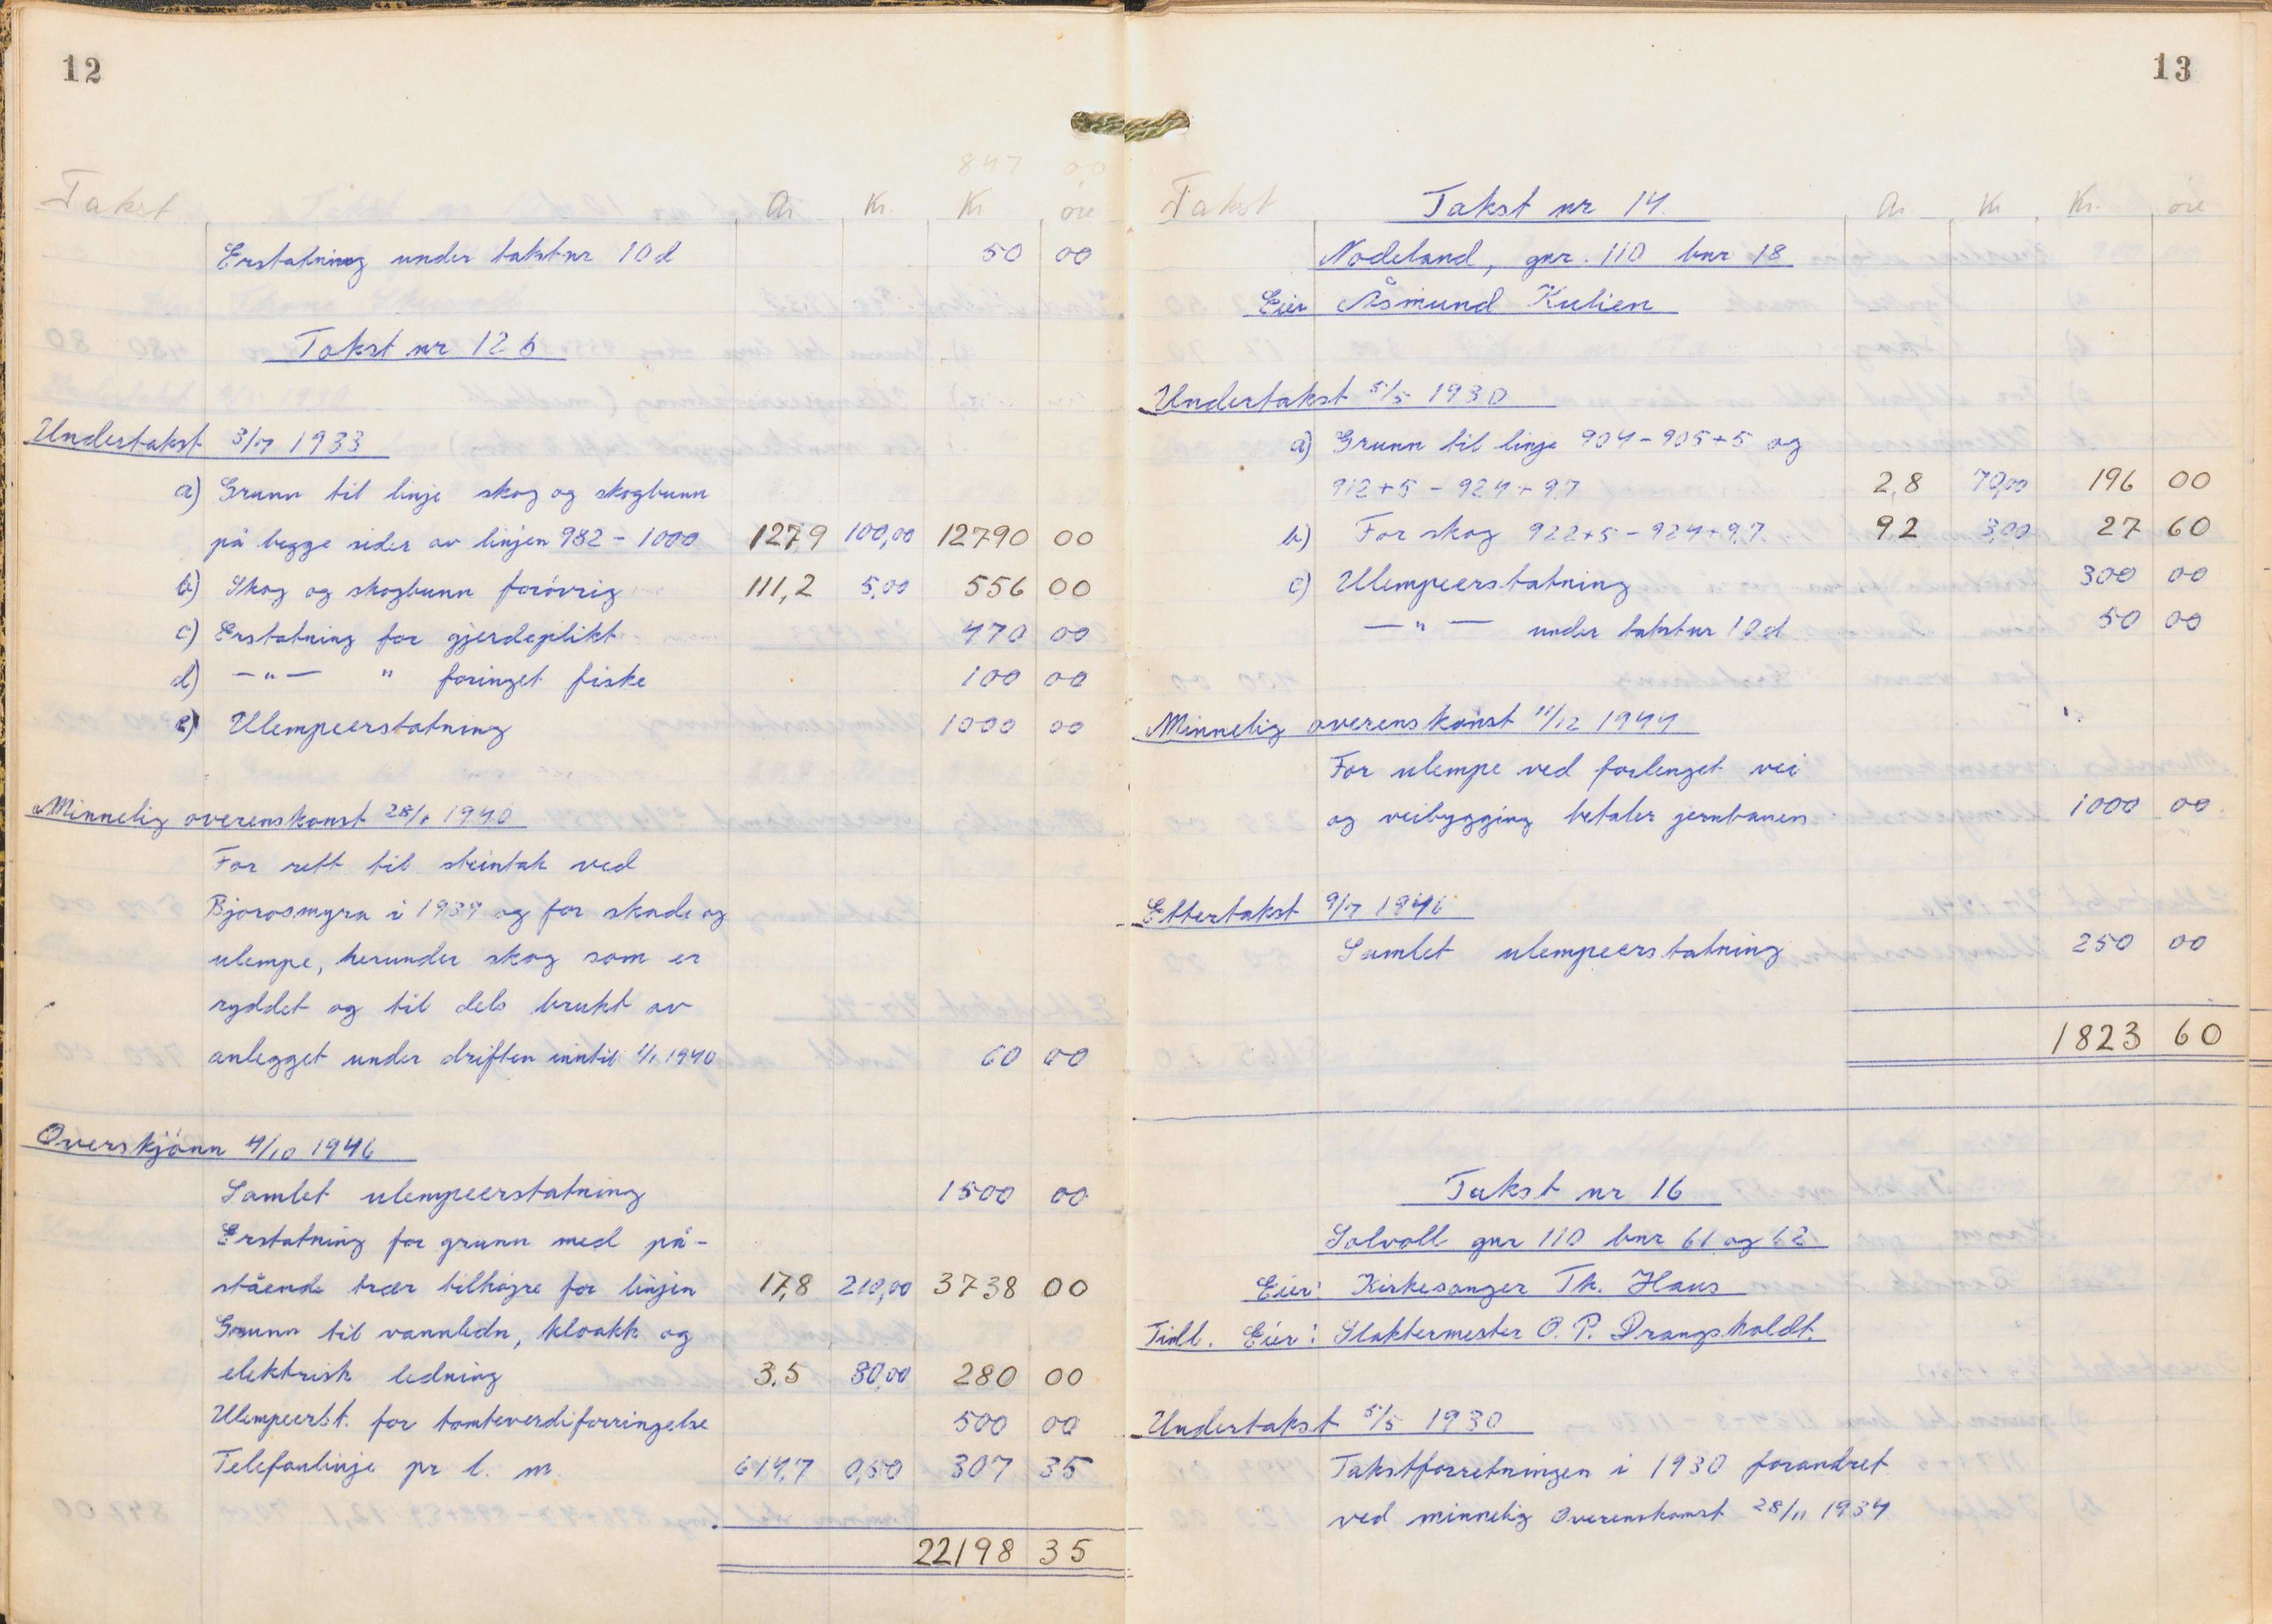 12
847 00
Takst Ar Kr. Kr øre
Erstatning under takst nr 10d 50 00
Takst nr 12 b
Undertakst 3/7 1933
a) Grunn til linje skog og skogbunn
på begge sider av linjen 982 - 1000 127,9 100,00 12790 00
b) Skog og skogbunn forøvrig 111,2 5,00 556 00
c) Erstatning for gjerdeplikt 470 00
d) —"— " foringet fiske 100 00
e) Ulempeerstatning 1000 00
Minnelig overenskomst 1940
For rett til steintak ved
Bjorosmyra i 1939 og for skade og
ulempe, herunder skog som er
ryddet og til dels brukt av
anlegget under driften inntil 1/1 1940 60 00
Overskjønn 4/10 1946
Samlet ulempeerstatning 1500 00
Erstatning for grunn med på-
stående trær tilhøgre for linjen 17,8 210,00 3738 00
Grunn til vannledn, kloakk og
elektrisk ledning 3.5 80,00 280 00
Ulempeerst. for tomteverdiforringelse 500 00
Telefonlinje pr l. m. 614,7 0,50 307 35
22198 35
13
Takst Takst nr 14. Ar Kr Kr. øre
Nodeland, gnr. 110 bnr 18
Eier Åsmund Kulien
Undertakst 5/5 1930
a) Grunn til linje 904 - 905+5 og
912+5 - 924+9,7 2,8 70,00 196 00
b) For skog 922+5 - 924+9,7. 9,2 3,00 27 60
c) Ulempeerstatning 300 00
—"— under takst nr 10d 50 00
Minnelig overenskomst 11/12 1944
For ulempe ved forlenget vei
og veibygging betaler jernbanen 1000 00
Ettertakst 9/7 1946
Samlet ulempeerstatning 250 00
1823 60
Takst nr 16
Solvoll gnr 110 bnr 61 og 62
Eier: Kirkesanger Th. Haus
Tidl. Eier: Slaktermester O. P. Drangsholdt.
Undertakst 5/5 1930
Takstforretningen i 1930 forandret
ved minnelig overenskomst 28/11 1934